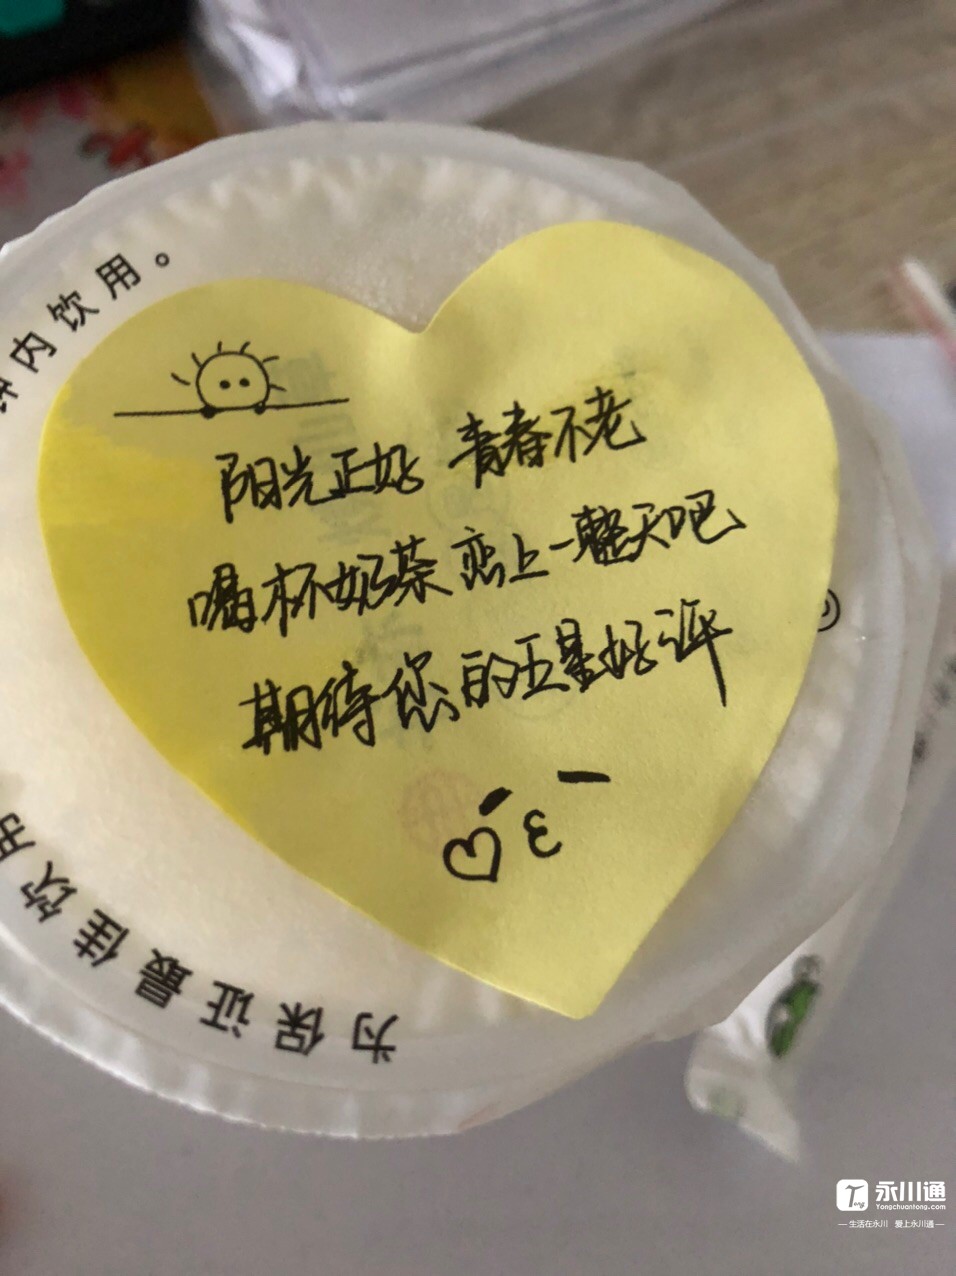 钟内饮用。
阳光正好 青春不老
喝杯奶茶 恋上一整天吧
期待您的五星好评
为保证最佳饮用
永川通
Yongchuantong.com
Tong
— 生活在永川 爱上永川通 —